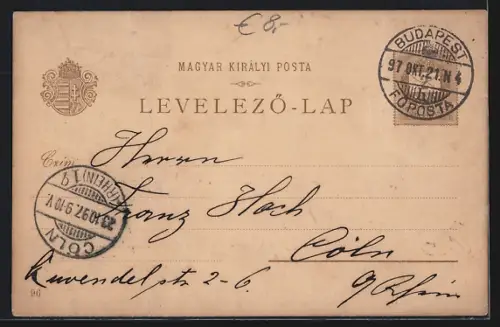 € 8,-
MAGYAR KIRÁLYI POSTA
LEVELEZŐ-LAP
BUDAPEST
97 OKT. 21. N 4
FŐPOSTA
Czim:
Herrn
Franz Hoch
Cöln
a/Rhein
2-6.
(RHEIN) 1 q
23.10.97. 9-10 V.
CÖLN
96